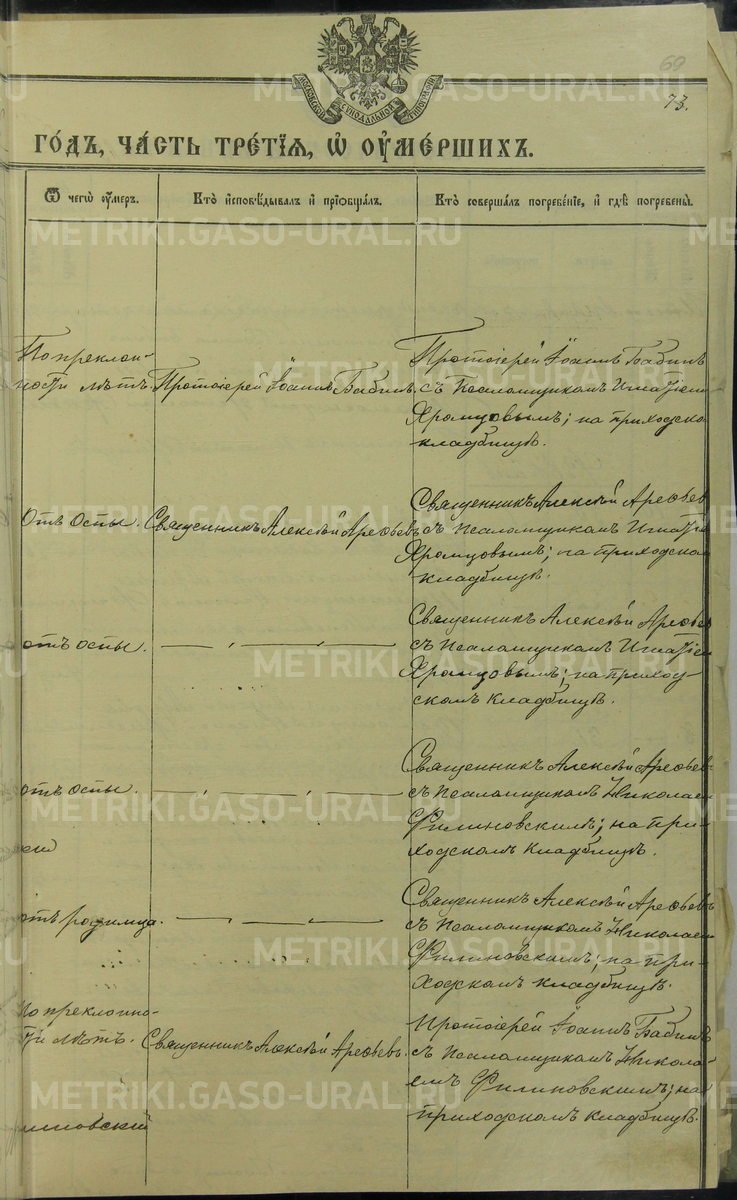 МОСКОВСКОЙ СѴНОДАЛЬНОЙ ТИПОГРАФІИ
69
73.
ГО́ДЪ, ЧА́СТЬ ТРЕ́ТІЯ, Ѡ҆ ОУ҆МЕ́РШИХЪ.
Ѿ чегѡ̀ оу҆́меръ.
Кто̀ и҆сповѣ́дывалъ и҆ прїѡбща́лъ.
Кто̀ соверша́лъ погребе́нїе, и҆ гдѣ̀ погребены̀.
По преклон-
ности лѣтъ.
Протоіерей Іоаннъ Бабинъ.
Протоіерей Іоаннъ Бабинъ
съ Псаломщикомъ Игнатіем
Хромцовымъ; на приходско
кладбищѣ.
Отъ оспы.
Священникъ Алексѣй Арефьевъ
Священникъ Алексѣй Арефьев
съ Псаломщикомъ Игнатіе
Хромцовымъ; на приходском
кладбищѣ.
отъ оспы.
Священникъ Алексѣй Арефьев
съ Псаломщикомъ Игнатіем
Хромцовымъ; на приход-
скомъ кладбищѣ.
отъ оспы.
Священникъ Алексѣй Арефьев
съ Псаломщикомъ Николаем
Филиновскимъ; на при-
ходскомъ кладбищѣ.
отъ родимца.
Священникъ Алексѣй Арефьевъ
съ Псаломщикомъ Николаем
Филиновскимъ; на при-
ходскомъ кладбищѣ.
По преклонно-
сти лѣтъ.
Священникъ Алексѣй Арефьевъ.
Протоіерей Іоаннъ Бабинъ
съ Псаломщикомъ Никола-
емъ Филиновскимъ; на
приходскомъ кладбищѣ.
линовский
METRIKI.GASO-URAL.RU